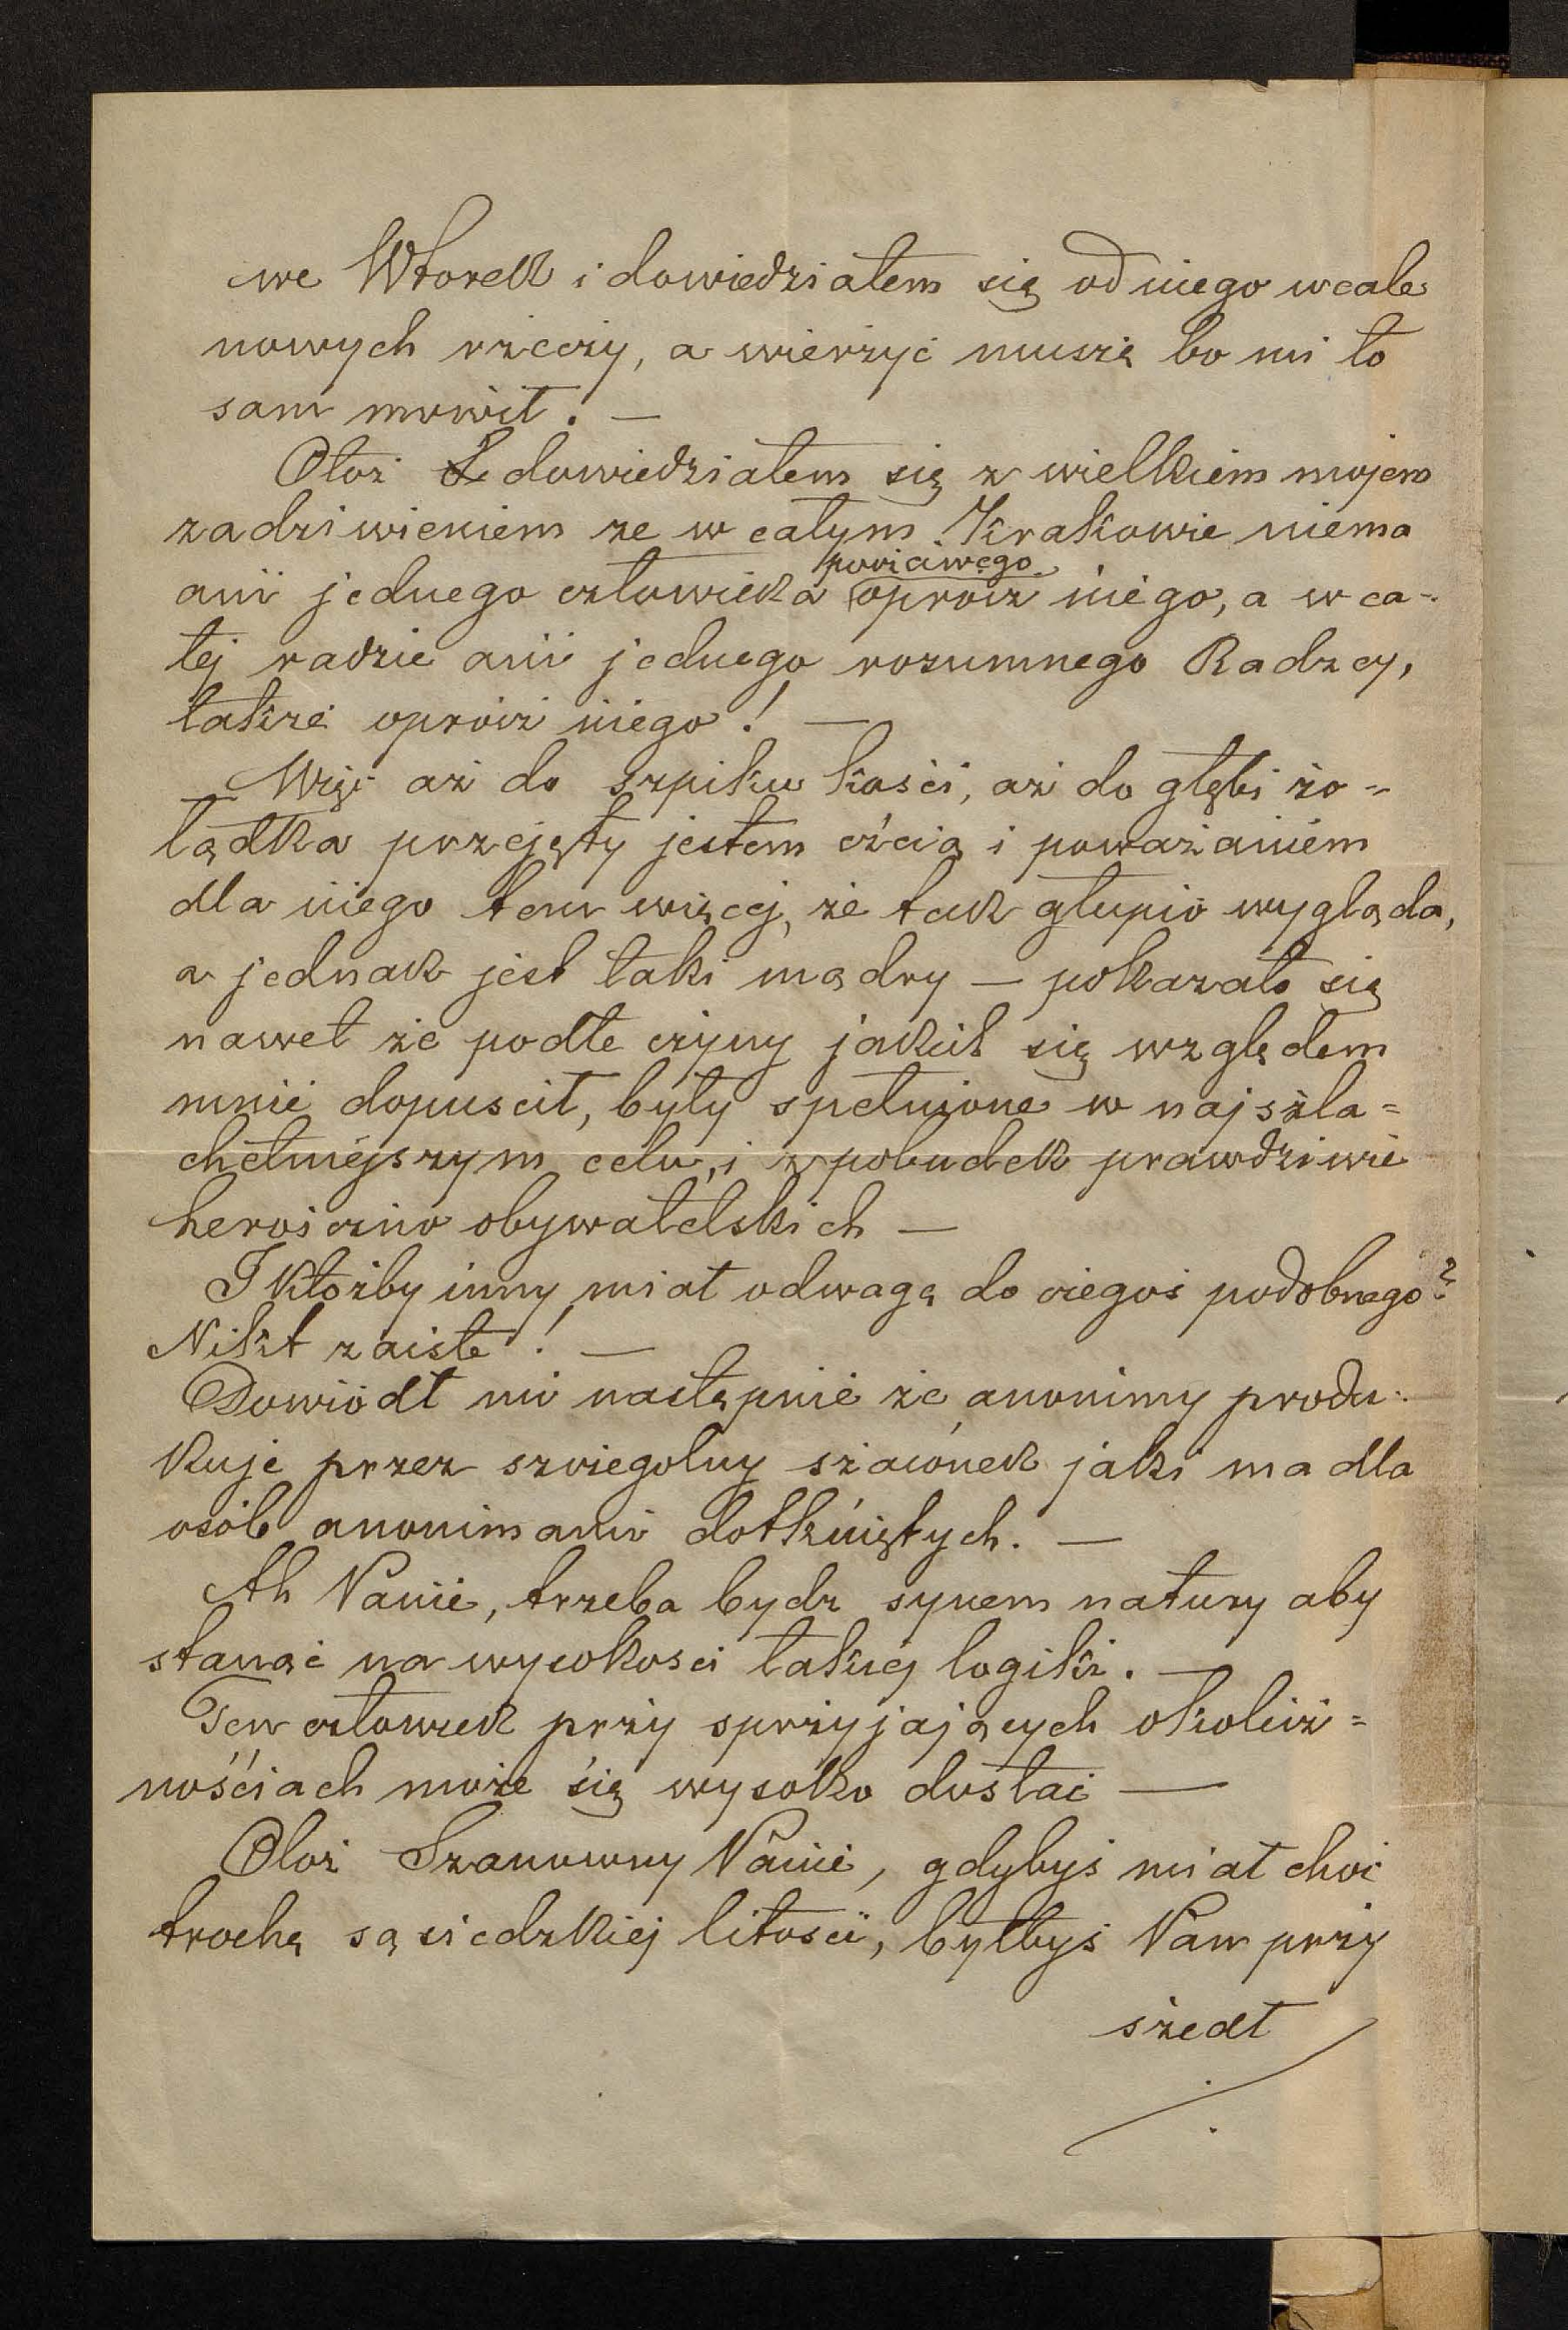 we Wtorek i dowiedziałem się od niego wcale
nowych rzeczy, a wierzyć muszę bo mi to
sam mowił. —
Otoż dowiedziałem się z wielkiem mojem
zadziwieniem ze w całym Krakowie niema
ani jednego człowieka poczciwego oprócz niego, a w ca-
łej radzie ani jednego rozumnego Radzcy,
także oprócz niego! —
Więc aż do szpiku kości, aż do głębi żo-
łądka przejęty jestem czcią i poważaniem
dla niego tem więcej, że tak głupio wygląda,
a jednak jest taki mądry — pokazało się
nawet że podłe czyny jakich się względem
mnie dopuscił, były spełnione w najszla=
chetniejszym celu, i z pobudek prawdziwie
heroiczno obywatelskich —
I któżby inny miał odwagę do czegoś podobnego?
Nikt zaiste! —
Dowiódł mi następnie że anonimy produ-
kuje przez szczegolny szacónek jaki ma dla
osób anonimami dotkniętych. —
Ah Panie, trzeba bydz synem natury aby
stanąć na wysokosci takiej logiki. —
Ten człowiek przy sprzyjających okolicz=
nościach może się wysoko dostać —
Otoż Szanowny Panie, gdybyś miał choć
trochę sąsiedzkiej litości, byłbyś Pan przy
szedł